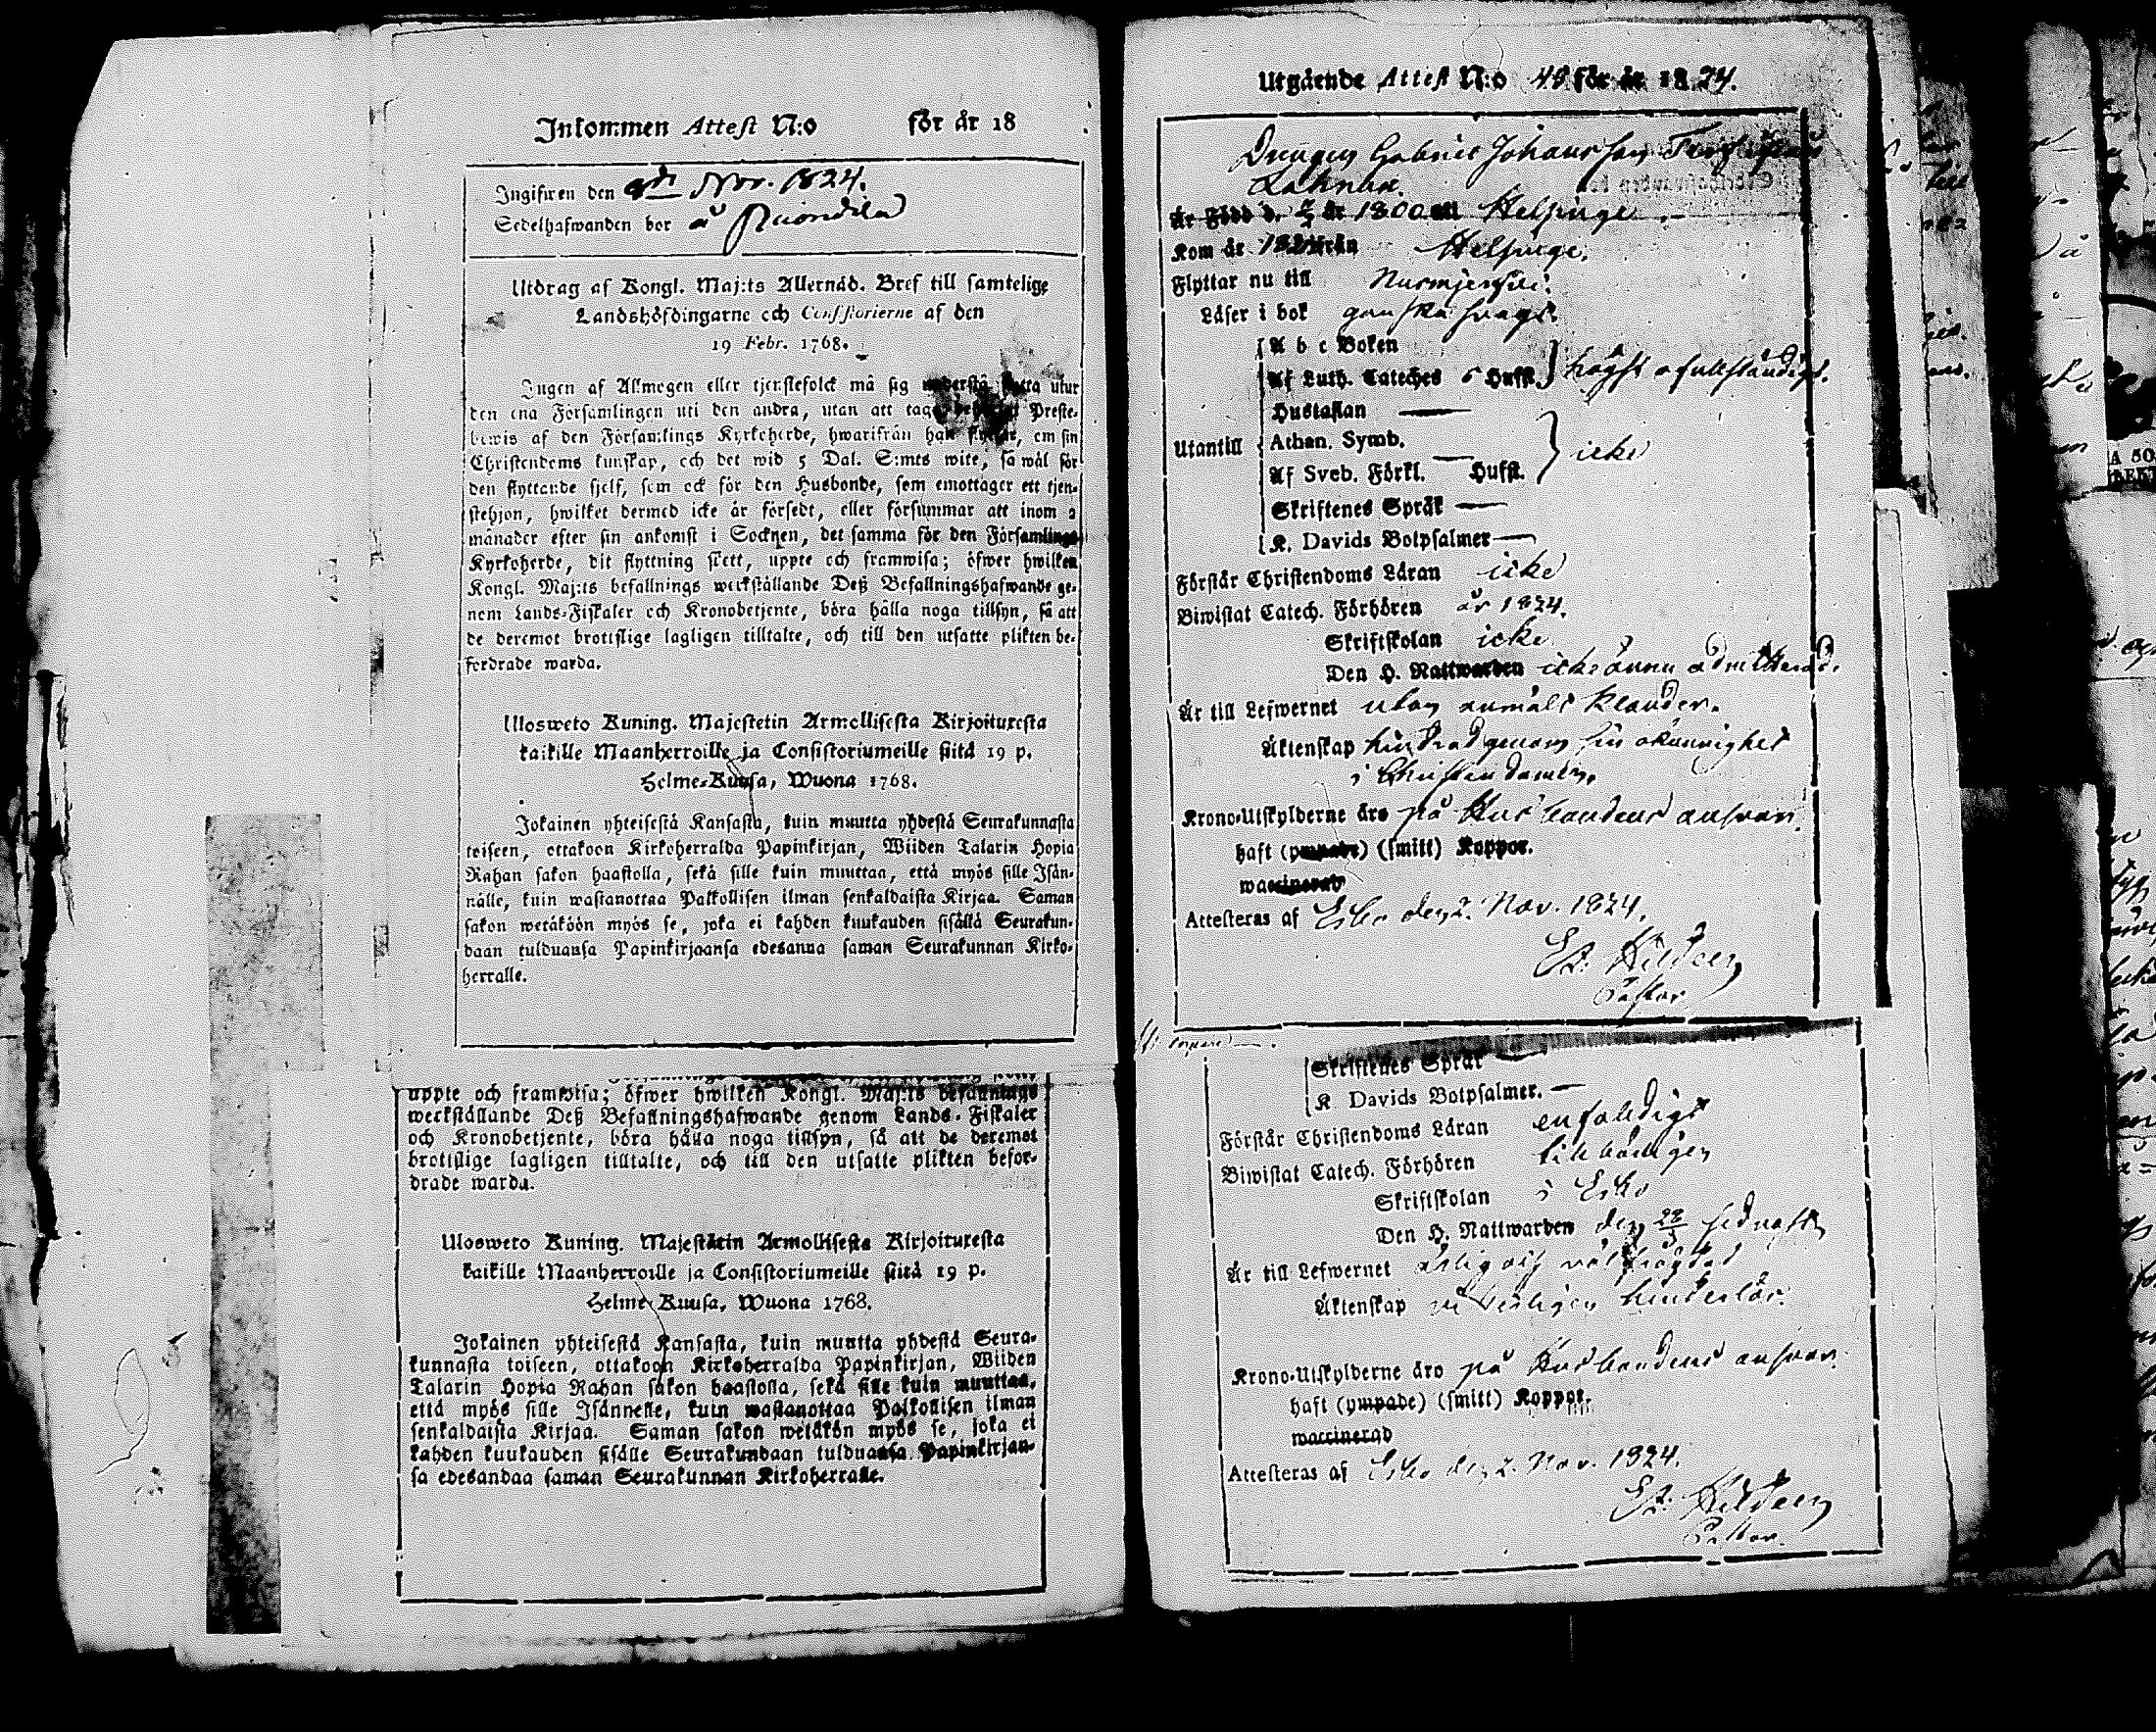 Inkommen Attest N:o för år 18
Ingifwen den 8de Nov. 1824.
Sedelhafwanden bor å
Utdrag af Kongl. Maj:ts Allernåd. Bref till samtelige
Landshöfdingarne och Consistorierne af den
19 Febr. 1768.
Ingen af Allmogen eller tjenstefolck må sig understå flytta utur
den ena Församlingen uti den andra, utan att taga Preste-
bewis af den Församlings Kyrkoherde, hwarifrån han flyttar, om sin
Christendoms kunskap, och det wid 5 Dal. S:mts wite, så wäl för
den flyttande sjelf, som ock för den Husbonde, som emottager ett tjen-
stehjon, hwilket dermed icke är försedt, eller försummar att inom 2
månader efter sin ankomst i Socknen, det samma för den Församlings
Kyrkoherde, dit flyttning skett, uppte och framwisa; öfwer hwilken
Kongl. Maj:ts befallnings werkställande Deß Befallningshafwande ge-
nom Lands-Fiskaler och Kronobetjente, böra hålla noga tillsyn, så att
de deremot brottslige lagligen tilltalte, och till den utsatte plikten be-
fordrade warda.
Ulosweto Kuning. Majestetin Armollisesta Kirjoituresta
kaikille Maanherroille ja Consistoriumeille siitä 19 p.
Helme-Kuusa, Wuona 1768.
Jokainen yhteisestä Kansasta, kuin muutta yhdestä Seurakunnasta
toiseen, ottakoon Kirkoherralda Papinkirjan, Wiiden Talarin Hopia
Rahan sakon haastolla, sekä sille kuin muuttaa, että myös sille Isän-
nälle, kuin wastanottaa Palkollisen ilman senkaldaista Kirjaa. Saman
sakon wetäköön myös se, joka ei kahden kuukauden sisällä Seurakun-
daan tulduansa Papinkirjaansa edesannа saman Seurakunnan Kirko-
herralle.
uppte och framwisa; öfwer hwilken Kongl. Maj:ts befallnings
werkställande Deß Befallningshafwande genom Lands-Fiskaler
och Kronobetjente, böra hålla noga tillsyn, så att de deremot
brottslige lagligen tilltalte, och till den utsatte plikten befor-
drade warda.
Ulosweto Kuning. Majestätin Armollisesta Kirjoituresta
kaikille Maanherroille ja Consistoriumeille siitä 19 p.
Helme-Kuusa, Wuona 1768.
Jokainen yhteisestä Kansasta, kuin muutta yhdestä Seura-
kunnasta toiseen, ottakoon Kirkoherralda Papinkirjan, Wiiden
Talarin Hopia Rahan sakon haastolla, sekä sille kuin muuttaa,
että myös sille Isännelle, kuin wastanottaa Palkollisen ilman
senkaldaista Kirjaa. Saman sakon wetäkön myös se, joka ei
kahden kuukauden sisälle Seurakundaan tulduansa Papinkirjan-
sa edesandaa saman Seurakunnan Kirkoherralle.
Utgående Attest N:o 48 för år 1824.
Drängen Gabriel Johansson
Är Född d. år 1800 uti Helsinge
Kom år ifrån Helsinge.
Flyttar nu till Nurmijervi.
Läser i bok ganska svagt.
A b c Boken
Af Luth. Cateches 5 Hufst. högst ofullständigt.
Hustaflan
Utantill Athan. Symb. icke
Af Sveb. Förkl. Hufst.
Skriftenes Språk
K. Davids Botpsalmer
Förstår Christendoms Läran icke
Biwistat Catech. Förhören år 1824.
Skriftskolan icke
Den H. Nattwarden icke ännu admitterad.
Är till Lefwernet utan anmält klander.
Äktenskap hindrad genom sin okunnighet
i Christendomen.
Krono-Utskylderne äro på Husbondens ansvar.
haft (ympade) (smitt) Koppor.
waccinerad
Attesteras af Esbo den 2. Nov. 1824.
Pastor
Skriftenes Språk
K Davids Botpsalmer.
Förstår Christendoms Läran enfaldigt
Biwistat Catech. Förhören tillbörligen
Skriftskolan i Esbo
Den H. Nattwarden den sednast
Är till Lefwernet ärlig och väl frägdad
Äktenskap hinderlös.
Krono-Utskylderne äro på Husbondens ansvar.
haft (ympade) (smitt) Koppor.
waccinerad
Attesteras af Esbo den 2. Nov. 1824.
Pastor.